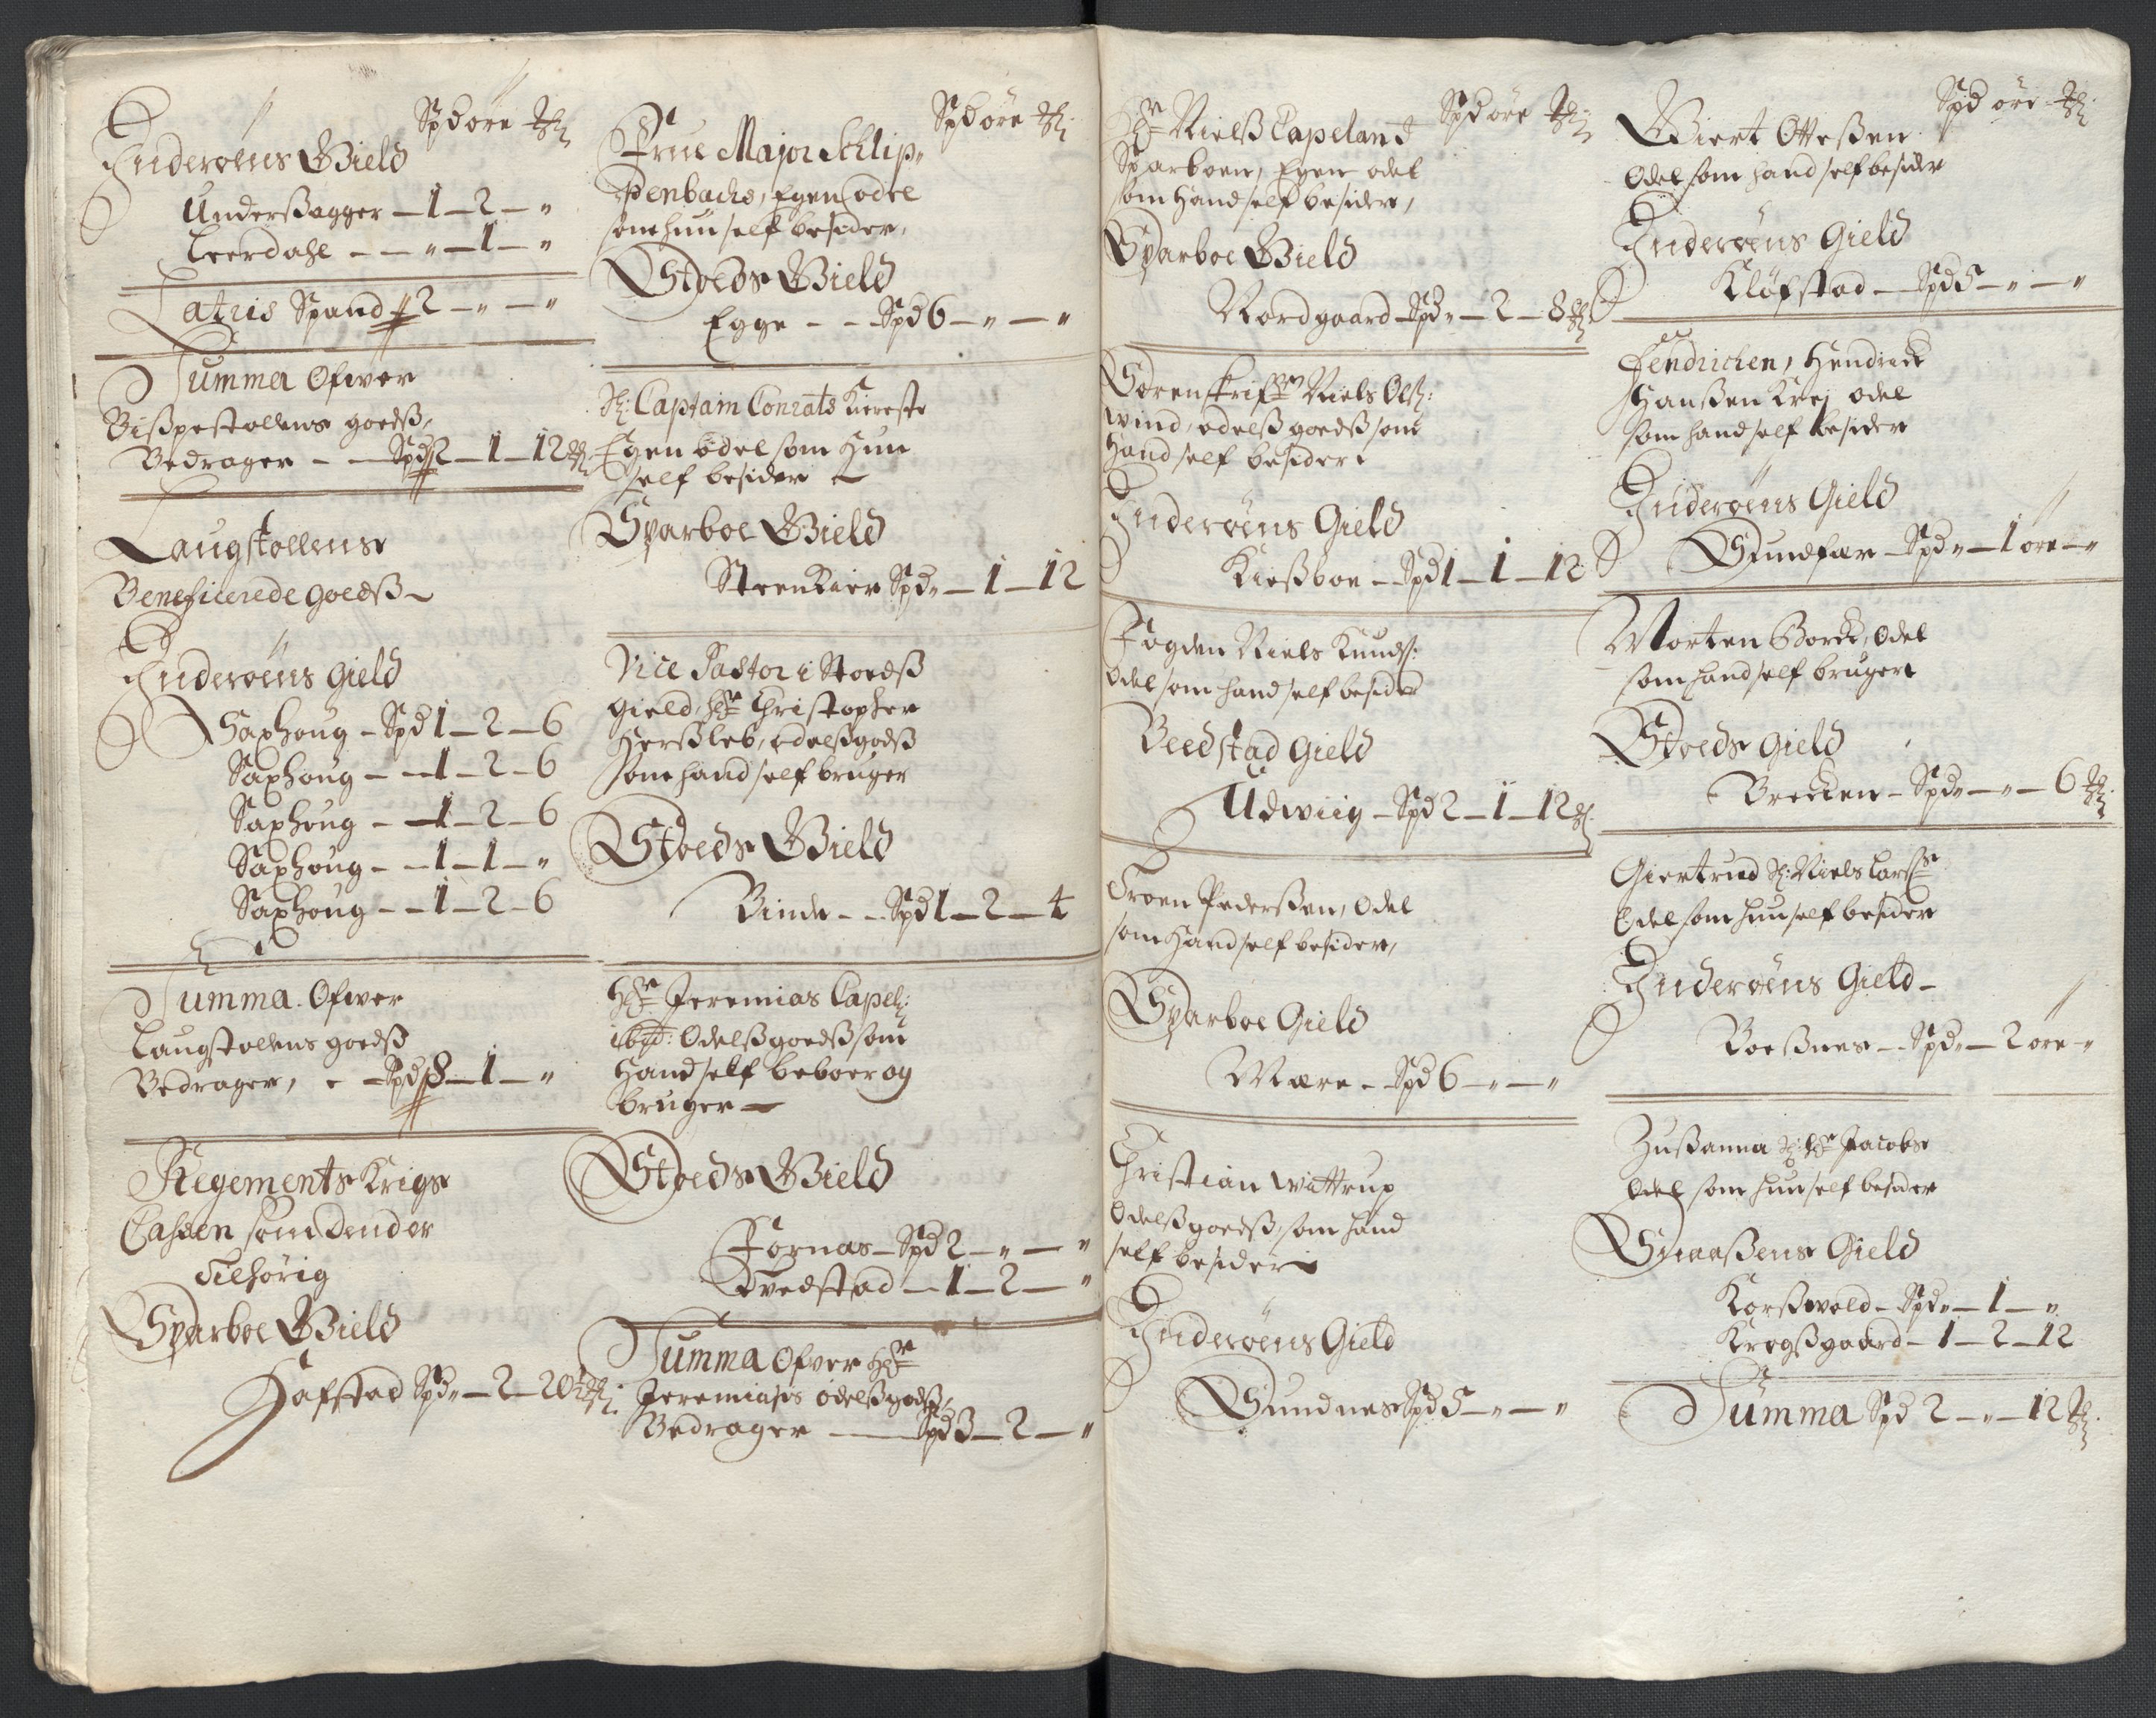 Spd öre
Inderöens Gield
Underßagger — 1 — 2 — „
Leerdahl — — „ — 1 — „
Latris Spand 2 — „ — „
Summa Ofwer
Bißpestollens goedß,
Bedrager — — Spd 2 — 1 — 12
Laugstollens
Beneficerede goedß
Inderöens Gield
Saxhoug — Spd 1 — 2 — 6
Saxhoug — — 1 — 2 — 6
Saxhoug — — 1 — 2 — 6
Saxhoug — — 1 — 1 — „
Saxhoug — — 1 — 2 — 6
Summa Ofwer
Laugstollens goedß
Bedrager, — Spd 8 — 1 — „
Regements Krigs
Cassen som dend er
tilhörig
Sparboe Gield
Hafstad Spd „ — 2 — 20
Spd öre
Frue Major Schlip-
penbachs, Egen odel
som hun self besider,
Stoeds Gield
Egge — — Spd 6 — „ — „
Sl: Captain Conrats Kiereste
Egen odel som hun
self besider
Sparboe Gield
Steenkier Spd „ — 1 — 12
Vice Pastor i Stoedß
gield, Hr Christopher
Herßleb, odelß godß
som hand self bruger
Stoeds Gield
Binde — — Spd 1 — 2 — 4
Hr Jeremias Capel:
ibid: Odelß goedß som
hand self beboer og
bruger
Stoeds Gield
Fornas — Spd 2 — „ — „
Tvedstad — 1 — 2 — „
Summa Ofver Hr
Jeremiaßs odelß godß,
Bedrager — Spd 3 — 2 — „
Spd öre
Hr Nielß Capeland
Sparboen, Egen odel
som hand self besider,
Sparboe Gield
Nordgaard Spd „ — 2 — 8
Sorenskrifr Niels Ols:
Wind, odelß goedß som
hand self besider
Inderöens Gield
Kießboe — Spd 1 — 1 — 12
Fogden Niels Knuds:
Odel som hand self besider
Beedstad Gield
Udwiig — Spd 2 — 1 — 12
Troen Pederßen, Odel
som hand self besider,
Sparboe Gield
Mære — Spd 6 — „ — „
Christian Wittrup
Odelß goedß, som hand
self besider
Inderöens Gield
Sundnes Spd 5 — „ — „
Spd öre
Giert Otteßen
Odel som hand self besider
Inderöens Gield
Kløfstad — Spd 5 — „ — „
Fendrichen, Hendrick
Hanßen Krej odel
som hand self besider
Inderöens Gield
Sundfær — Spd „ — 1 öre — „
Morten Borck, Odel
som hand self bruger
Stoeds Gield
Brecken — Spd „ — „ — 6
Giertrud Sl: Niels Larss
Odel som hun self besider
Inderöens Gield
Roeßnes — Spd „ — 2 öre „
Zußanna Sl: Hr Jacobs
Odel som hun self besider
Snaaßens Gield
Korßwold — Spd „ — 1 — „
Krogßgaard — 1 — 2 — 12
Summa Spd 2 — „ — 12